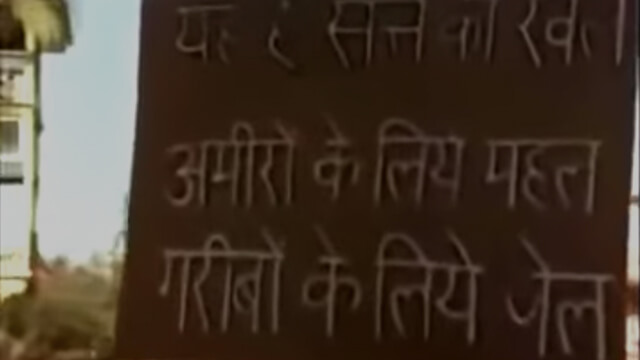 यह है सत्ता का खेल
अमीरों के लिये महल
गरीबों के लिये जेल